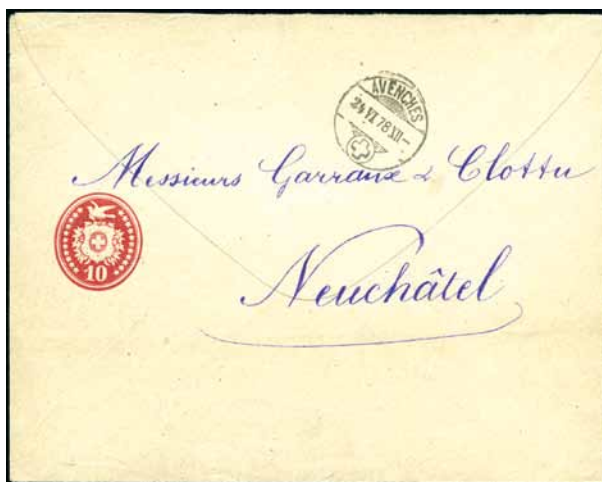 AVENCHES
24 VI 78 XII
Messieurs Garraux & Clottu
10
Neuchâtel